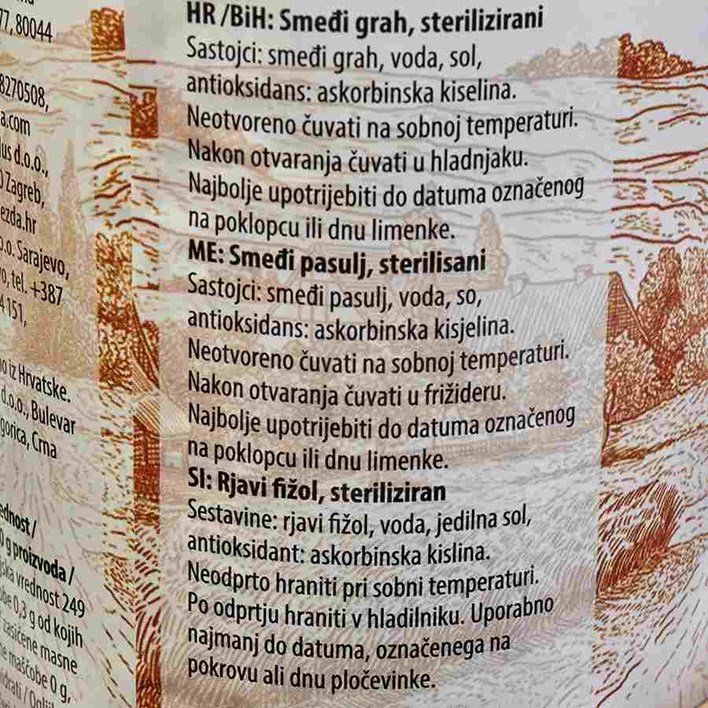 77, 80044
8270508,
a.com
d.o.o.,
Zagreb,
ezda.hr
Sarajevo,
tel. +387
151,
iz Hrvatske.
d.o.o., Bulevar
gorica, Crna
g proizvoda /
vrednost 249
0,3 g od kojih
zasićene masne
maščobe 0 g,
HR /BiH: Smeđi grah, sterilizirani
Sastojci: smeđi grah, voda, sol,
antioksidans: askorbinska kiselina.
Neotvoreno čuvati na sobnoj temperaturi.
Nakon otvaranja čuvati u hladnjaku.
Najbolje upotrijebiti do datuma označenog
na poklopcu ili dnu limenke.
ME: Smeđi pasulj, sterilisani
Sastojci: smeđi pasulj, voda, so,
antioksidans: askorbinska kisjelina.
Neotvoreno čuvati na sobnoj temperaturi.
Nakon otvaranja čuvati u frižideru.
Najbolje upotrijebiti do datuma označenog
na poklopcu ili dnu limenke.
SI: Rjavi fižol, steriliziran
Sestavine: rjavi fižol, voda, jedilna sol,
antioksidant: askorbinska kislina.
Neodprto hraniti pri sobni temperaturi.
Po odprtju hraniti v hladilniku. Uporabno
najmanj do datuma, označenega na
pokrovu ali dnu pločevinke.